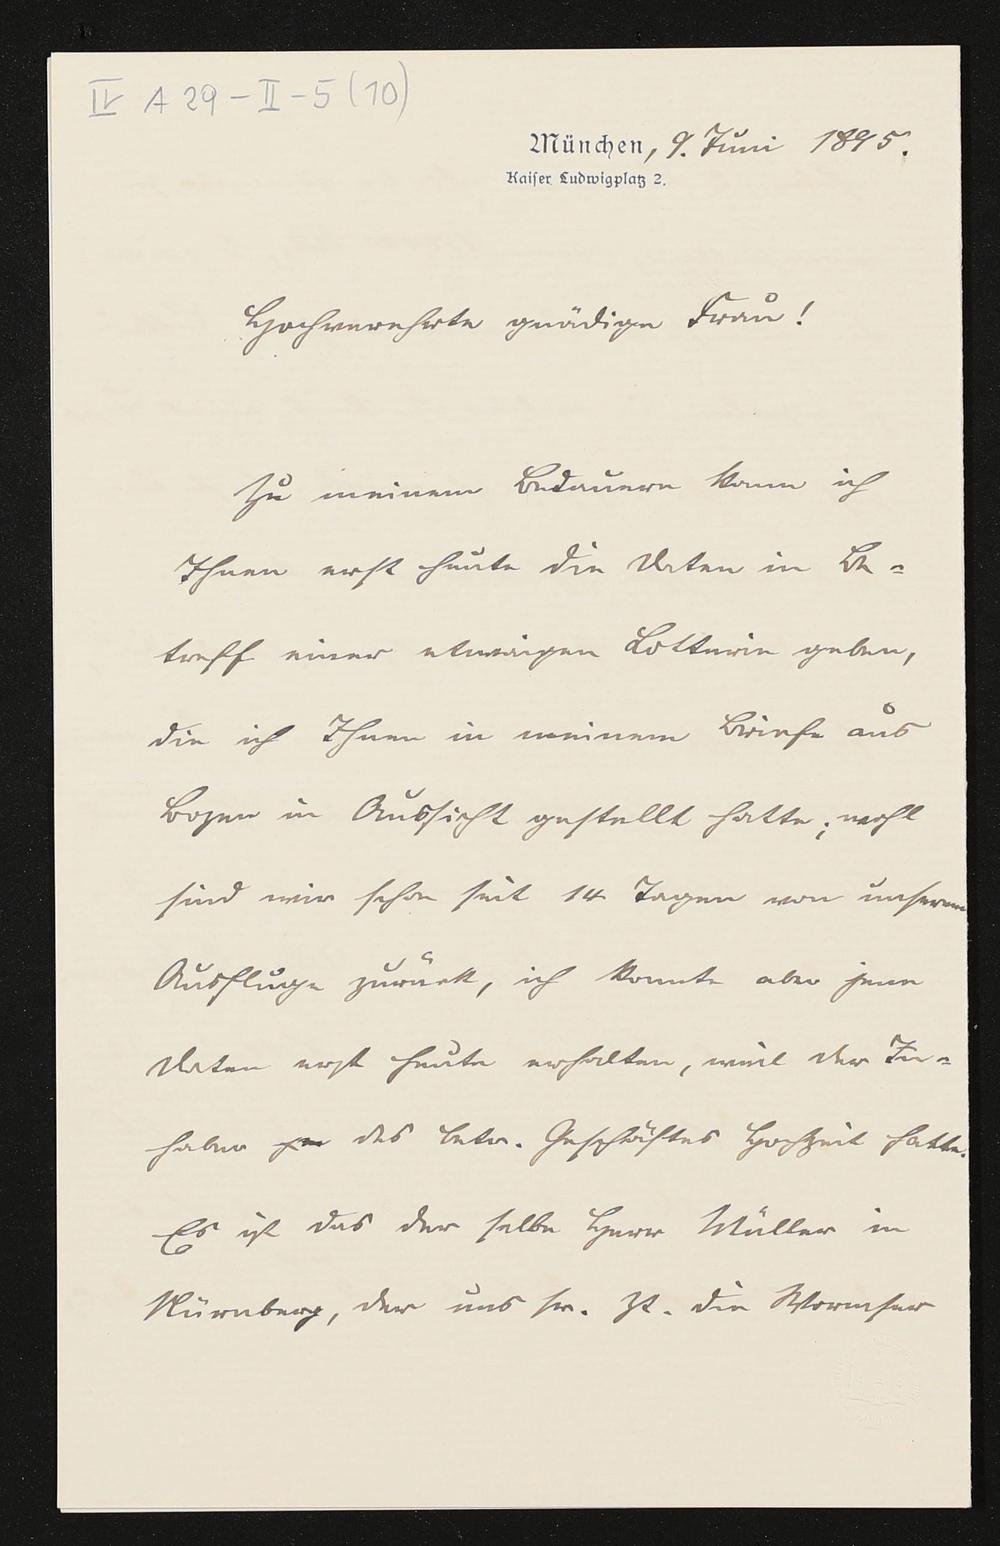 IV A 29 – II – 5 (10)
München, 9. Juni 1895.
Kaiser Ludwigplatz 2.
Hochverehrte gnädige Frau!
Zu meinem Bedauern kann ich
Ihnen erst heute die Daten in Be-
treff einer etwaigen Lotterie geben,
die ich Ihnen in meinem Briefe aus
Bozen in Aussicht gestellt hatte; wohl
sind wir schon seit 14 Tagen von unserem
Ausfluge zurück, ich konnte aber jene
Daten erst heute erhalten, weil der In-
haber des betr. Geschäftes Hochzeit hatte.
Es ist das der selbe Herr Müller in
Nürnberg, der uns sr. Zt. die Wormser